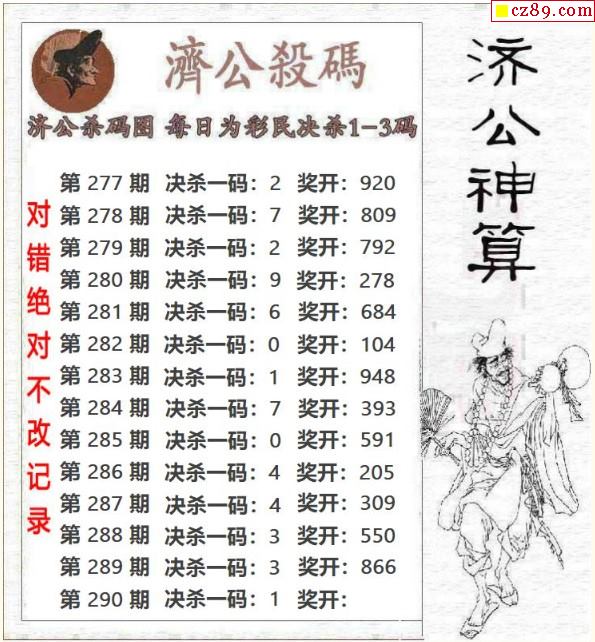 cz89.com
濟公殺碼
济公杀码图 每日为彩民决杀1-3码
第 277 期 决杀一码：2 奖开：920
第 278 期 决杀一码：7 奖开：809
第 279 期 决杀一码：2 奖开：792
第 280 期 决杀一码：9 奖开：278
第 281 期 决杀一码：6 奖开：684
第 282 期 决杀一码：0 奖开：104
第 283 期 决杀一码：1 奖开：948
第 284 期 决杀一码：7 奖开：393
第 285 期 决杀一码：0 奖开：591
第 286 期 决杀一码：4 奖开：205
第 287 期 决杀一码：4 奖开：309
第 288 期 决杀一码：3 奖开：550
第 289 期 决杀一码：3 奖开：866
第 290 期 决杀一码：1 奖开：
对错绝对不改记录
济公神算